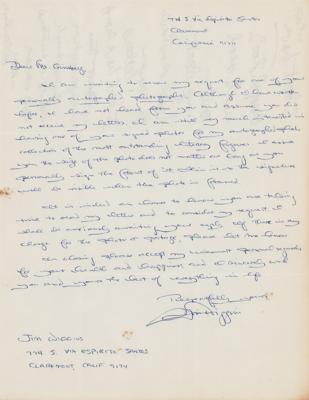 774 S. Via Espirito Santo
Claremont
California 91711
Dear Mr. Ginsberg
I am writing to renew my request for one of your
personally autographed photographs. Although I have written
before, I have not heard from you and assume you did
not receive my letters. I am still very much interested in
having one of your signed photos for my autographed photo
collection of the most outstanding literary figures. I assure
you the size of the photo does not matter as long as you
personally sign the front of it in ink so the signature
will be visible when the photo is framed.
It is indeed an honor to know you are taking
time to read my letter and to consider my request. I
shall be anxiously awaiting your reply. If there is any
charge for the photo or postage, please let me know.
In closing please accept my warmest personal regards
for your health and happiness and I sincerely wish
you and yours the best of everything in life.
Respectfully yours,
Jim Wiggins
Jim Wiggins
774 S. Via Espirito Santo
Claremont, Calif 91711